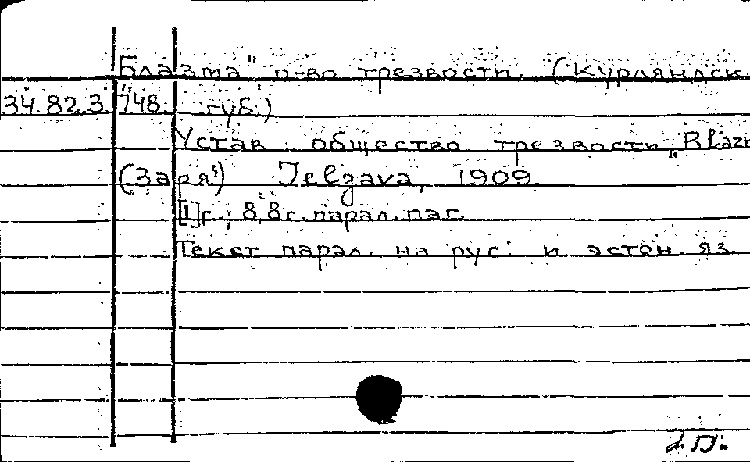 „Блазма" о-во трезвости. (Курляндск.
34.82.3.748. губ.)
Устав общества трезвости „Blazm
(Заря") Jelgava, 1909.
[1] с., 8,8 с. парал. паг.
Текст парал. на рус. и эстон. яз.